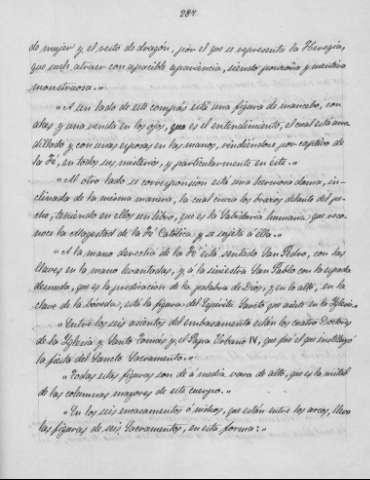 284.
de mujer y el resto de dragón, por el que se representa la Heregia,
que suele atraer con apacible apariencia, siendo ponzoña y mentira
monstruosa.»
«A un lado de este compás está una figura de mancebo, con
alas y una venda en los ojos, que es el entendimiento, el cual está arro
dillado y con unas esposas en las manos, rindiéndose por captivo de
la Fé, en todos sus misterios, y particularmente en éste.»
«Al otro lado se correspondien está una hermosa dama, in-
clinada de la misma manera, la cual cruza los brazos delante del pe-
cho, teniendo en ellos un libro, que es la Sabiduria humana que reco-
noce la Magestad de la Fé Católica y se sujeta á ella.»
«A la mano derecha de la Fé está sentado San Pedro, con las
llaves en la mano levantadas, y á la siniestra San Pablo con la espada
desnuda, que es la predicación de la palabra de Dios, y en lo alto, en la
clave de la bóveda, está la figura del Espíritu Santo que asiste en su Iglesia.
«Entre los seis asientos del embasamento están los cuatro Doctores
de la Iglesia y Santo Tomás y el Papa Urbano IV, que fué el que instituyó
la fiesta del Sancto Sacramento.»
«Todas estas figuras son de á media vara de alto, que es la mitad
de las columnas mayores de este cuerpo.»
«En los seis encasamentos ó nichos, que están entre los arcos, lleva
las figuras de seis Sacramentos, en esta forma:»